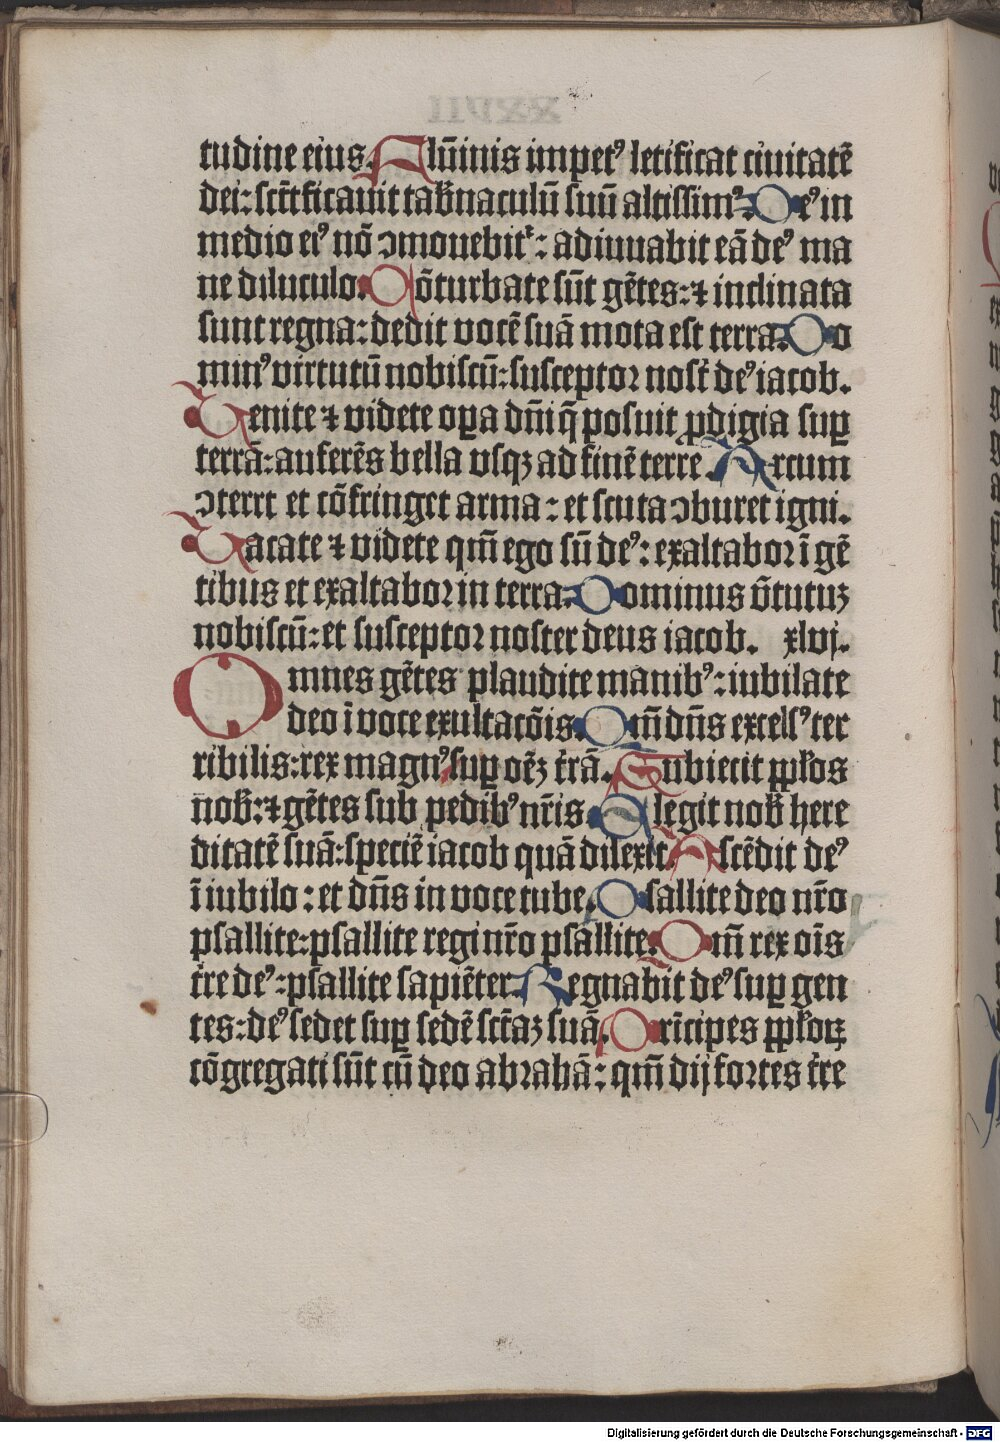 tudine eius. Flūinis impetꝰ letificat ciuitatē
dei: sct̄ificauit tab̄naculū suū altissimꝰ. Deꝰ in
medio eiꝰ nō ↄmouebit᷑: adiuuabit eā deꝰ ma
ne diluculo. Cōturbate sūt gētes: ⁊ inclinata
sunt regna: dedit vocē suā mota est terra. Do
minꝰ virtutū nobiscū: susceptor nost̄ deꝰ iacob.
Venite ⁊ videte oꝑa dn̄i q̄ posuit ꝓdigia suꝑ
terrā: auferēs bella vsqꝫ ad finē terre. Arcum
ↄteret et cōfringet arma: et scuta ↄburet igni.
Vacate ⁊ videte qm̄ ego sū deꝰ: exaltabor ī gē
tibus et exaltabor in terra. Dominus v̄tutuꝫ
nobiscū: et susceptor noster deus iacob. xlvj.
Omnes gētes plaudite manibꝰ: iubilate
deo ī voce exultatōis. Qm̄ dn̄s excelsꝰ ter
ribilis: rex magnꝰ suꝑ oēꝫ t̄rā. Subiecit ppl̄os
nob̄: ⁊ gētes sub pedibꝰ nr̄is. Elegit nob̄ here
ditatē suā: speciē iacob quā dilexit. Ascēdit deꝰ
ī iubilo: et dn̄s in voce tube. Psallite deo nr̄o
psallite: psallite regi nr̄o psallite. Qm̄ rex oīs
t̄re deꝰ: psallite sapiēter. Regnabit deꝰ suꝑ gen
tes: deꝰ sedet suꝑ sedē sct̄aꝫ suā. Prīcipes ppl̄oꝝ
cōgregati sūt cū deo abrahā: qm̄ dij fortes t̄re
Digitalisierung gefördert durch die Deutsche Forschungsgemeinschaft - DFG